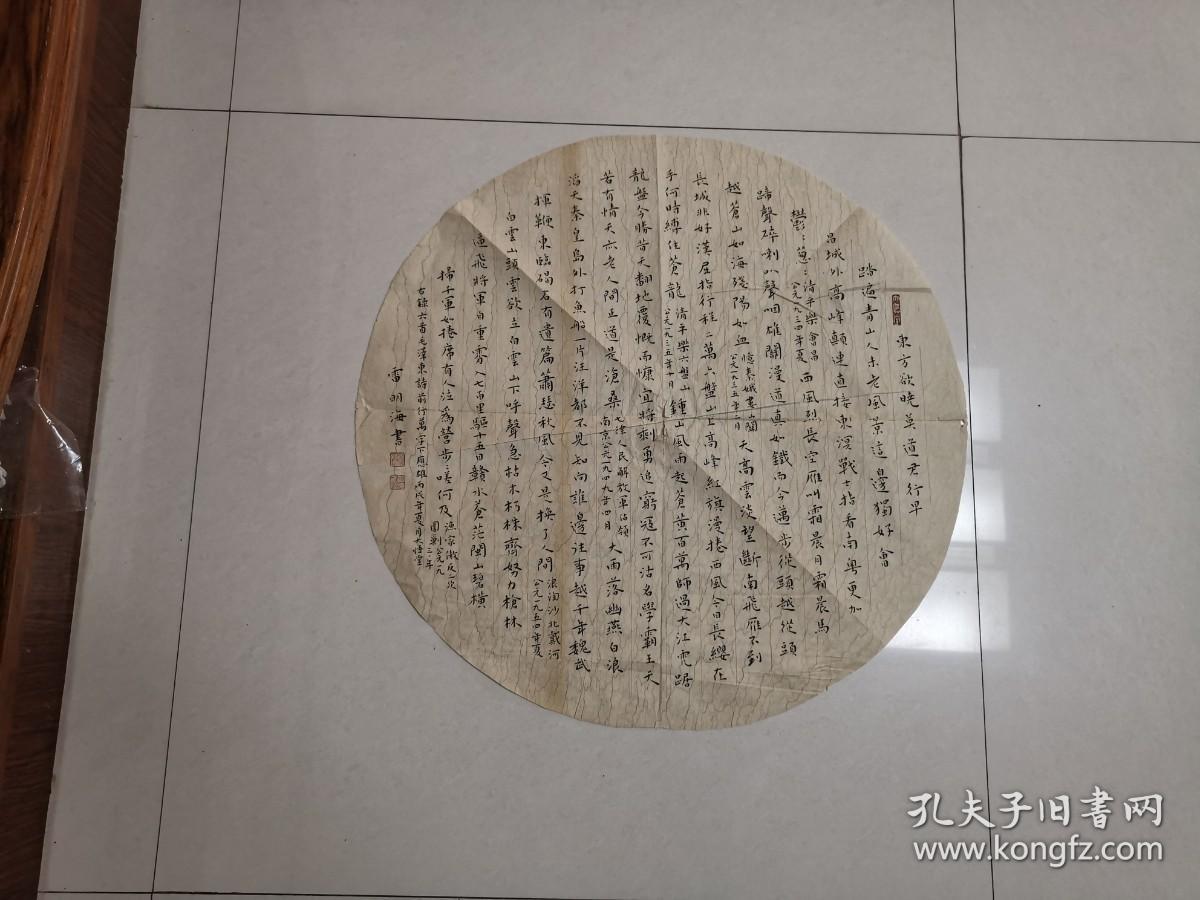 東方欲曉莫道君行早
踏遍青山人未老風景這邊獨好會
昌城外高峰顛連直接東溟戰士指看南粤更加
鬱鬱葱葱清平樂會昌公元一九三四年夏西風烈長空雁叫霜晨月霜晨馬
蹄聲碎喇叭聲咽雄關漫道真如鐵而今邁步從頭越從頭
越蒼山如海殘陽如血憶秦娥婁關公元一九三五年二月天高雲淡望斷南飛雁不到
長城非好漢屈指行程二萬六盤山上高峰紅旗漫捲西風今日長纓在
手何時縛住蒼龍清平樂六盤山公元一九三五年十月鍾山風雨起蒼黄百萬師過大江虎踞
龍盤今勝昔天翻地覆慨而慷宜將剩勇追窮寇不可沽名學霸王天
若有情天亦老人間正道是滄桑七律人民解放軍佔領南京公元一九四九年四月大雨落幽燕白浪
滔天秦皇島外打魚船一片汪洋都不見知向誰邊往事越千年魏武
揮鞭東臨碣石有遺篇蕭瑟秋風今又是換了人間浪淘沙北戴河公元一九五四年夏
白雲山頭雲欲立白雲山下呼聲急枯木朽株齊努力槍林
逼飛將軍自重霄入七百里驅十五日贛水蒼茫閩山碧横
掃千軍如捲席有人泣為營步步嗟何及漁家傲反二次圍剿公元一九三一年
右錄六首毛澤東詩 丙戌年夏月
雷明海書
孔夫子旧書网
www.kongfz.com